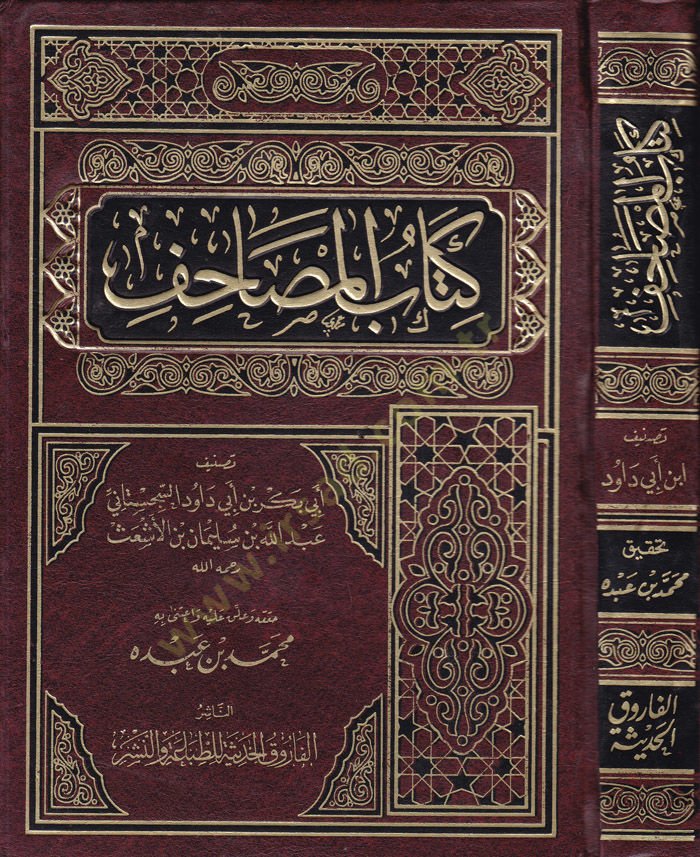 كتاب المصاحف
تصنيف
أبي بكر بن أبي داود السجستاني
عبد الله بن سليمان بن الأشعث
رحمه الله
حققه وعلق عليه واعتنى به
محمد بن عبده
الناشر
الفاروق الحديثة للطباعة والنشر
كتاب المصاحف
تصنيف
ابن أبي داود
تحقيق
محمد بن عبده
الفاروق
الحديثة